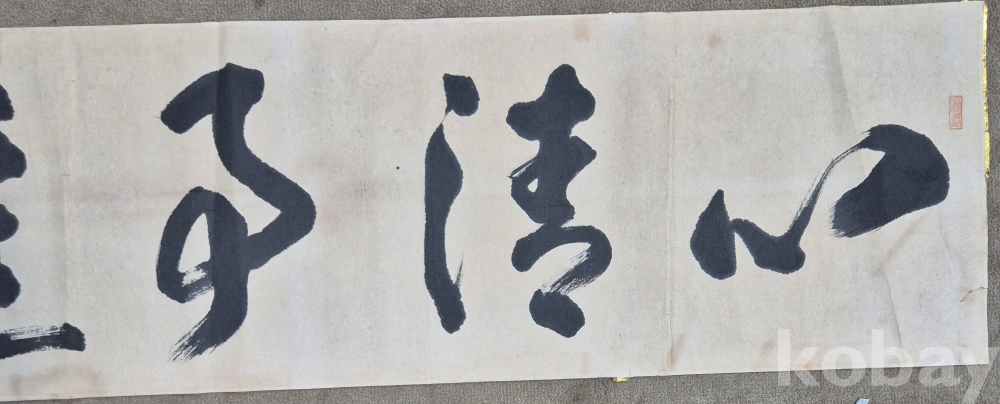 心清事
kobay